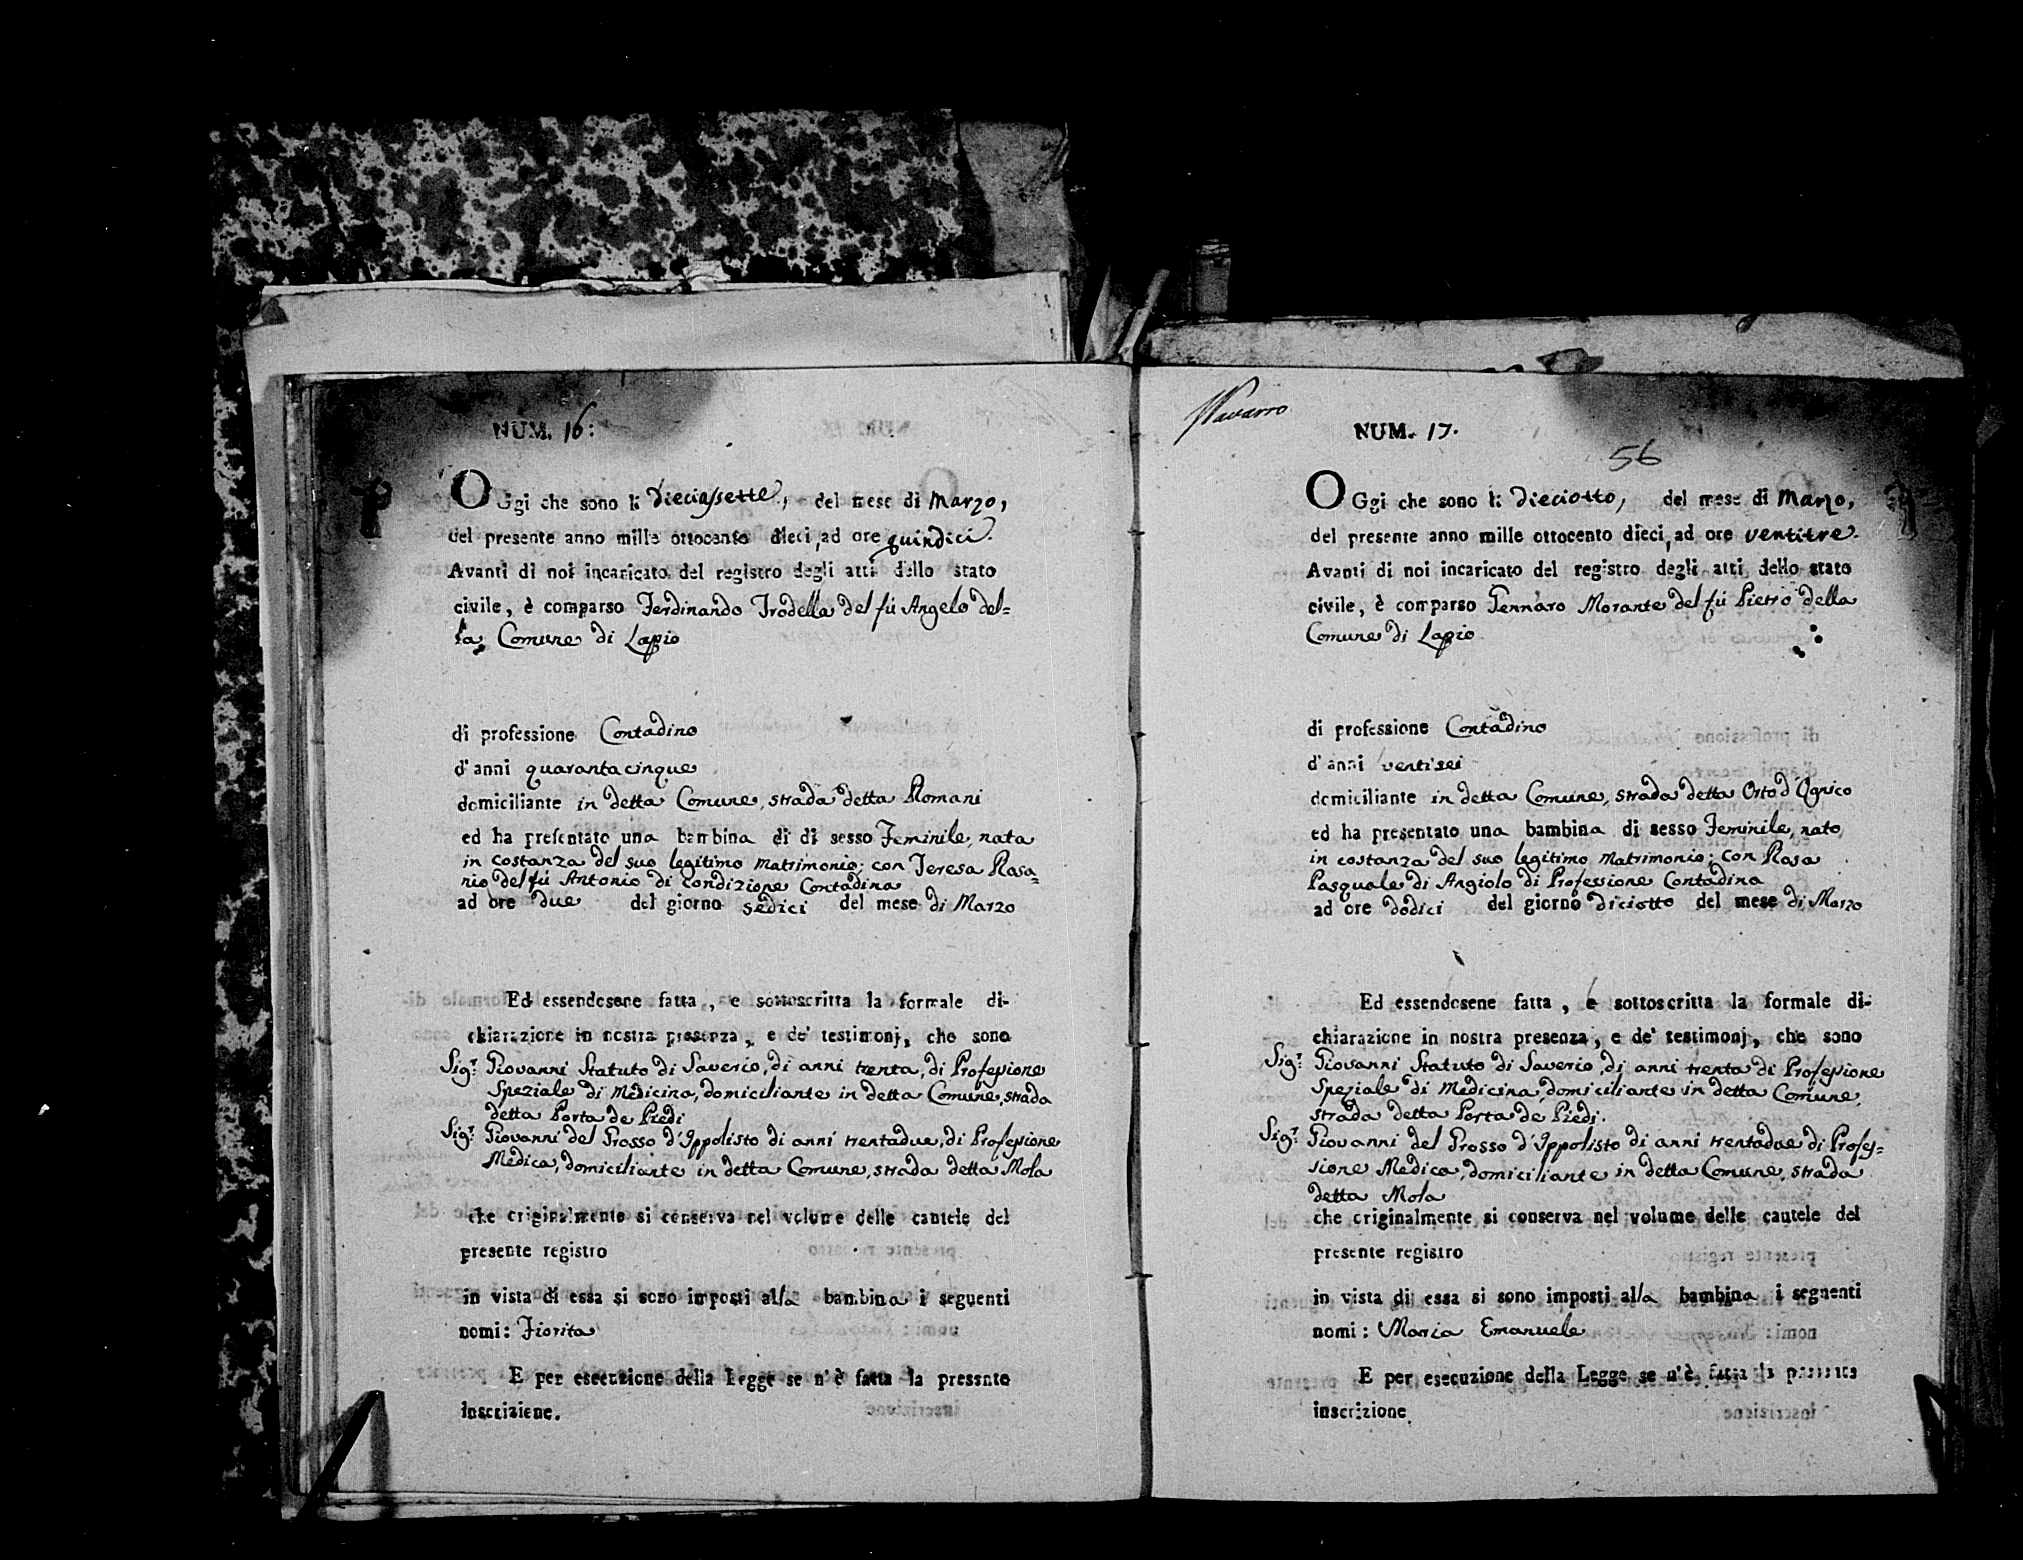 NUM. 16:
OGgi che sono li Dieciassette, del mese di Marzo,
del presente anno mille ottocento dieci, ad ore quindici.
Avanti di noi incaricato del registro degli atti dello stato
civile, è comparso Ferdinando Trodella del fú Angelo del=
la Comune di Lapio
di professione Contadino
d'anni quarantacinque
domiciliante in detta Comune, strada detta Romani
ed ha presentato una bambina di di sesso Feminile, nata
in costanza del suo legitimo Matrimonio; con Teresa Rosa=
nio del fú Antonio di condizione Contadina
ad ore due del giorno sedici del mese di Marzo
Ed essendosene fatta, e sottoscritta la formale di-
chiarazione in nostra presenza, e de' testimonj, che sono
Sigr. Giovanni Statuto di Saverio, di anni trenta, di Professione
Speziale di Medicina, domiciliante in detta Comune, strada
detta Porta de Piedi
Sigr. Giovanni del Grosso d'Ippolisto di anni trentadue, di Professione
Medica, domiciliante in detta Comune, strada detta Mola
che originalmente si conserva nel volume delle cautele del
presente registro
in vista di essa si sono imposti alla bambina i seguenti
nomi: Fiorita
E per esecuzione della Legge se n'è fatta la presente
inscrizione.
Navarro
NUM. 17.
56
OGgi che sono li Dieciotto, del mese di Marzo,
del presente anno mille ottocento dieci, ad ore ventitre.
Avanti di noi incaricato del registro degli atti dello stato
civile, è comparso Gennaro Morante del fú Pietro della
Comune di Lapio
di professione Contadino
d'anni ventisei
domiciliante in detta Comune, strada detta Orto d'Agnico
ed ha presentato una bambina di sesso Feminile, nato
in costanza del suo legitimo Matrimonio; con Rosa
Pasquale di Angiolo di Professione Contadina
ad ore dodici del giorno diciotto del mese di Marzo
Ed essendosene fatta, e sottoscritta la formale di-
chiarazione in nostra presenza, e de' testimonj, che sono
Sigr. Giovanni Statuto di Saverio, di anni trenta di Professione
Speziale di Medicina, domiciliante in detta Comune,
strada detta Porta de Piedi.
Sigr. Giovanni del Grosso d'Ippolisto di anni trentadue di Profes=
sione Medica, domiciliante in detta Comune, strada
detta Mola
che originalmente si conserva nel volume delle cautele del
presente registro
in vista di essa si sono imposti alla bambina i seguenti
nomi: Maria Emanuele
E per esecuzione della Legge se n'è fatta la presente
inscrizione.